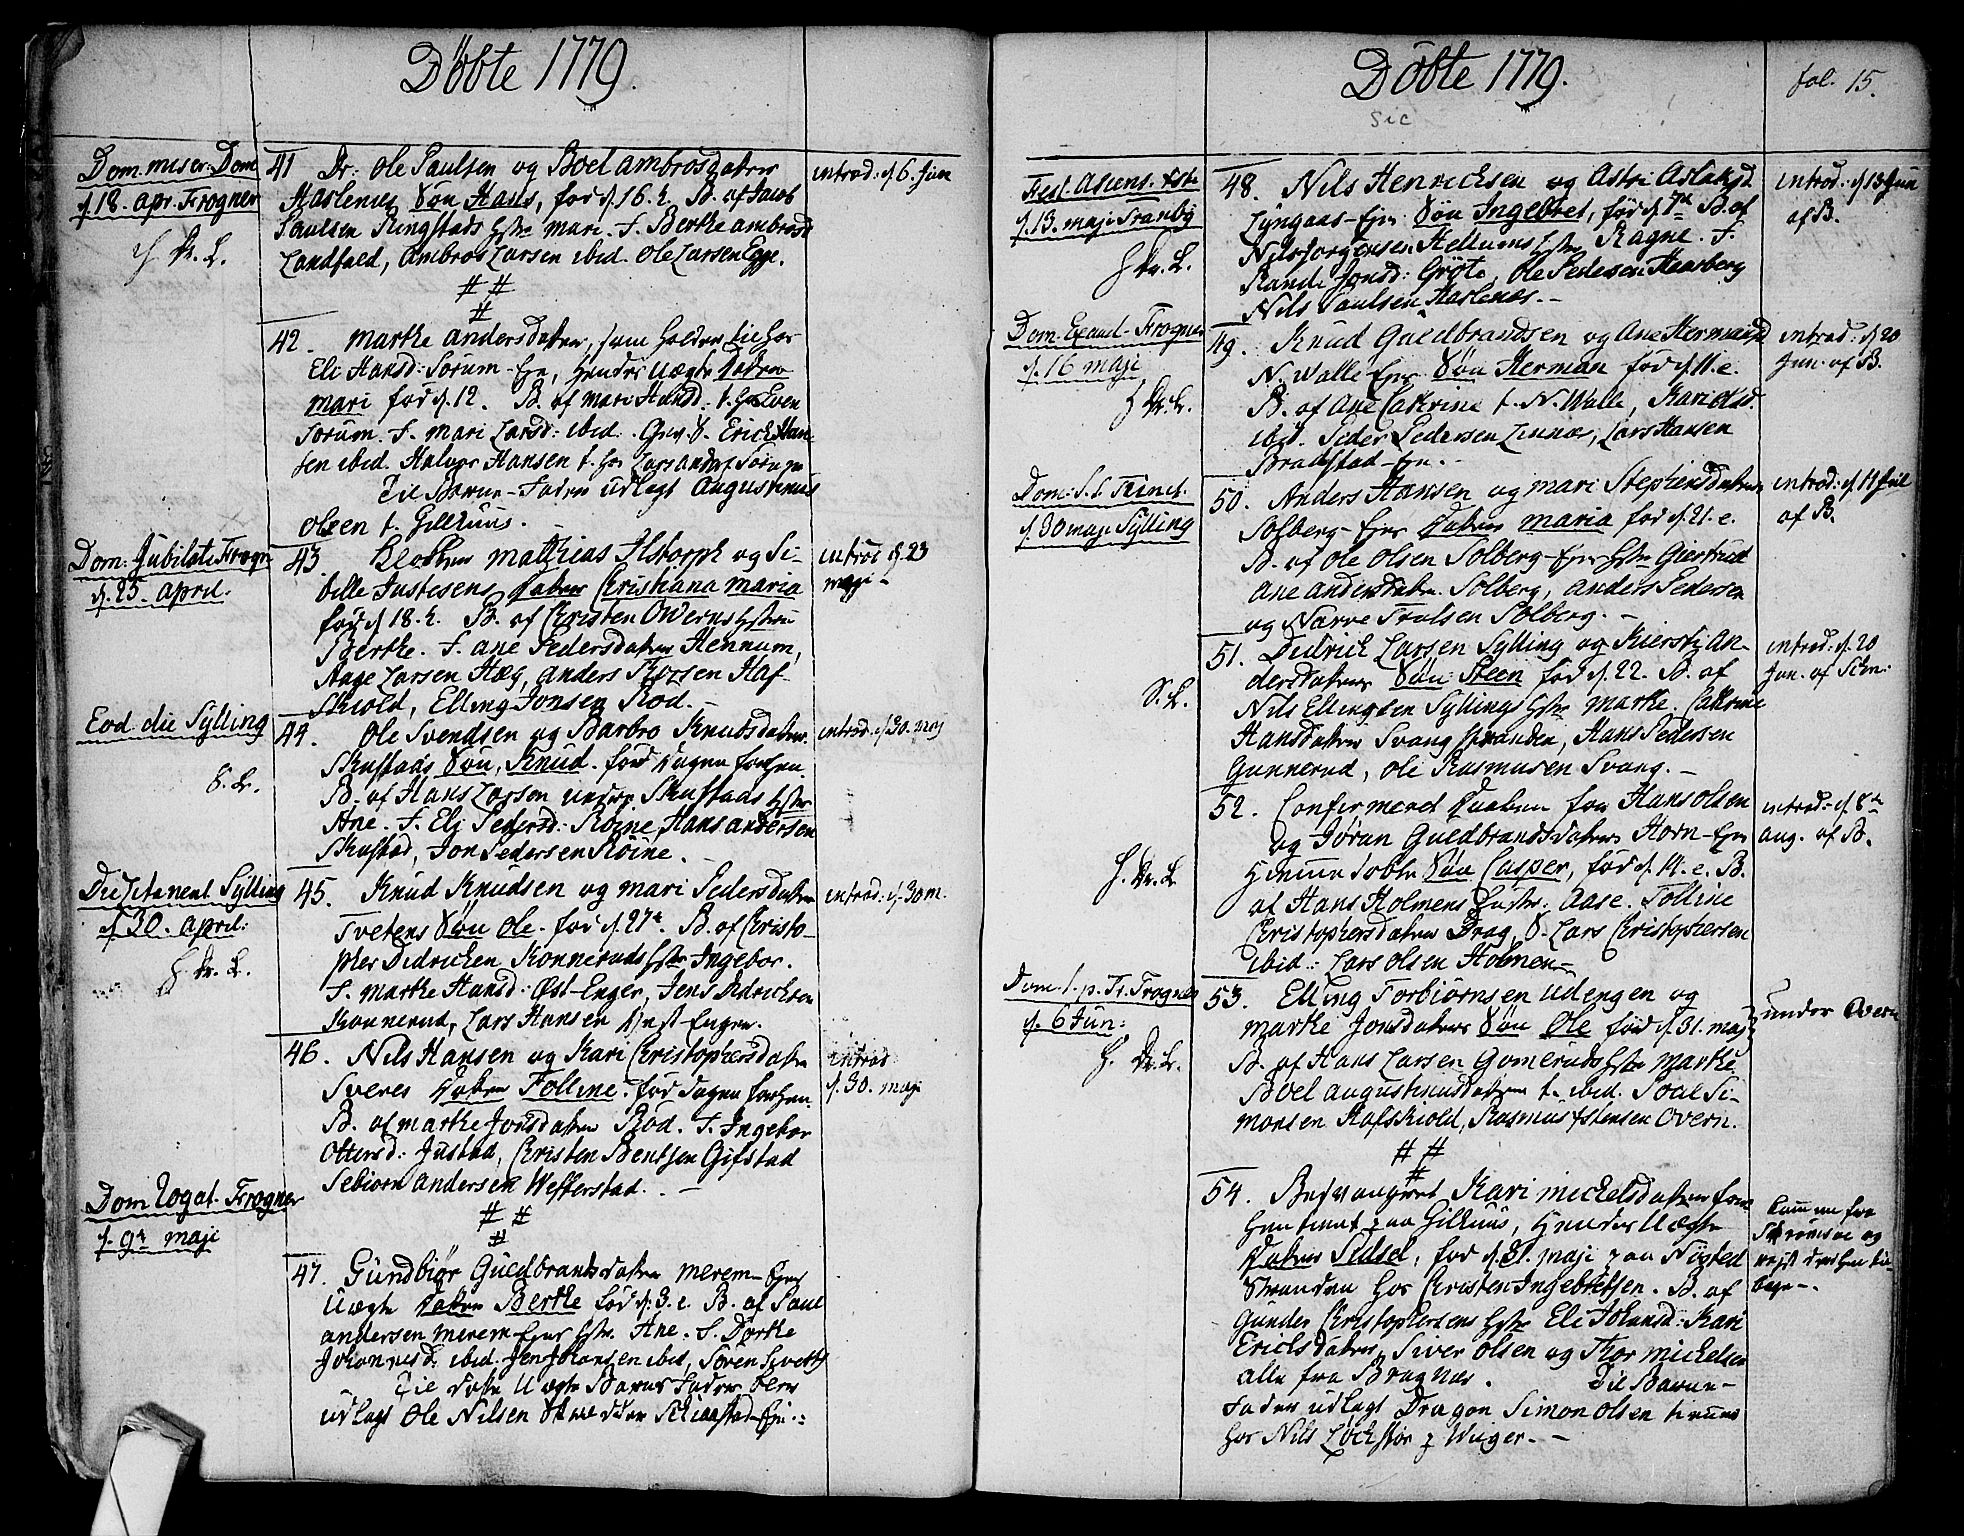 Döbte 1779.
Dom. miser: Dom
d. 18. Apr. Frogner
H. Pr. L.
41 Dr: Ole Paulsen og Boel Ambrosdatter
Haslenes Søn Hans, fød d. 16. h. B. af Jacob
Paulsen Ringstads hstr Mari. F. Berthe Ambrosd
Landfald, Ambros Larsen ibid. Ole Larsen Egge.
# #
#
introd: d. 6. Jun
42. Marthe Andersdatter, som holder til hos
Eli Hansd: Sorum-Eje, hendes Uægte Datter
Mari fød d. 12. B. af Mari Hansd: t. hos Even
Sorum. F. Mari Larsd: ibid. Gur. S. Erich Han
sen ibid. Halvor Hansen t. hos Lars Anders Sorum
Til Barne-Fader udlagt Augustinus
Olsen t. Gilhuus.
Dom: Jubilate Frogn
d. 25. April.
43 Klokker Matthias Ilstorph og Si-
bille Justesens Datter Christiana Maria
fød d 18. h. B. af Christen Overns hstru
Berthe. F. Ane Pedersdatter Hennum,
Aage Larsen Hæg, Anders Larsen Haf-
skiold, Elling Jonsen Rod.
introd d 23
maji -
Eod. die Sylling
S. L.
44. Ole Svendsen og Barbro Knudsdatter
Skustads Søn, Knud. fød dagen forhen.
B. af Hans Larsen undre Skustads hstr
Ane. F. Eli Pedersd: Roine, Hans Andersen
Skustad, Jon Pedersen Roine.
introd. d. 30. Maj
Die Litanent. Sylling
d. 30. April:
H. Pr. L.
45. Knud Knudsen og Mari Pedersdatter
Tvetens Søn Ole. fød d. 27h. B. af Christo-
pher Didrichsen Konneruds hstr Ingebor.
F. Marthe Hansd: Øst-Enger, Jens Didrichsen
Konnerud, Lars Hansen Vest-Engen.
introd: d. 30 m.
46. Nils Hansen og Kari Christophersdatter
Sveres Datter Tolline. fød dagen forhen.
B. af Marthe Jonsdatter Rød. F. Ingebor
Ottersd: Justad, Christen Bentsen Gifstad
Sebiorn Andersen Wefferstad. -
# #
#
introd
d. 30. maji
Dom Rogat. Frogner
d. 9h maji
47. Gundbiør Guldbrandsdatter Merem-Ejes
Uægte Datter Berthe fød d. 3. e. B. af Paul
Andersen Merem-Ejes hstr. Ane. F. Dorthe
Johannesd. ibid. Jens Johansen ibid, Søren Sivertss
Til dette Uægte Barns Fader blev
udlagt Ole Nilsen Skredder Schiaastad-Eje.:
Döbte 1779.
sic
fol. 15.
Fest. Ascens. Xsti
d. 13. maji Tranby
H Pr. L.
48. Nils Henrichsen og Astri Aslaksd
Lyngaas-Ejes Søn Ingebret, fød d. 7h B. af
Nils Jorgensen Hellums hstr Ragne. F.
Rande Jonsd: Gröte, Ole Pedersen Haarberg
Nils Paulsen Haslenæs. -
introd: d. 13 Jun
af B.
Dom. Exaud. Frogner
d. 16 maji
H Pr. L.
49. Knud Guldbrandsen og Ane Hermansd
N. Walle Ejes Søn Herman fød d. 11. e.
B. af Ane Cathrine t. N. Walle, Kari Olsd.
ibid. Peder Pedersen Linnæs, Lars Hansen
Bradstad-Eje. -
introd: d 20
Jun. af B.
Dom: S. S. Trinct.
d. 30 maji Sylling
50. Anders Hansen og Mari Stephensdatter
Solberg-Ejes Datter Maria fød d. 21. e.
B. af Ole Olsen Solberg-Ejes hstr Giertrud
Ane Andersdatter Solberg, Anders Pedersen
og Narve Trulsen Solberg. -
introd: d. 11 Jul
af B.
S. L.
51. Didrich Larsen Sylling og Kiersti An-
dersdatters Søn Steen fød d. 22. B. af
Nils Ellingsen Syllings hstr Marthe. Cathrine
Hansdatter Svangstranden, Hans Pedersen
Gunnerud, Ole Rasmusen Svang. -
introd: d. 20
Jun. af Skm:
H. Pr. L
52. Confirmered Daaben for Hans Olsen
og Jøran Guldbrandsdatters Horn-Ejes
Hjemmedøbte Søn Casper, fød d. 14. e. B.
af Hans Holmens Hustr: Aase. Tolline
Christophersdatter Drag, S. Lars Christophersen
ibid: Lars Olsen Holmen -
introd: d. 8h
aug. af B.
Dom. 1. p. Tr. Frogner
d. 6 Jun:
H. Pr. L.
53. Elling Torbiørnsen Udengen og
Marthe Jonsdatters Søn Ole fød d. 31. maj
B. af Hans Larsen Gomeruds hstr Marthe.
Boel Augustinusdatter t. ibid. Poul Si-
monsen Hafskiold, Rasmus Estensen Overn.
# #
#
under Overn
54. Besvangret Kari Mickelsdatter som
hentient paa Gilhuus, hendes Uægte
Datter Sidsel, fød d. 31. maji paa Nøsted
Stranden hos Christen Ingebretsen. B. af
Gunder Christophersens hstr Eli Johansd: Kari
Erichsdatter, Siver Olsen og Thor Mickelsen
alle fra Bragnæs. Til Barne-
Fader udlagt Dragon Simon Olsen tienes
hos Nils Lockstør p Wiger. -
kommen fra
Skouvne og
rejst derhen til-
bage -.